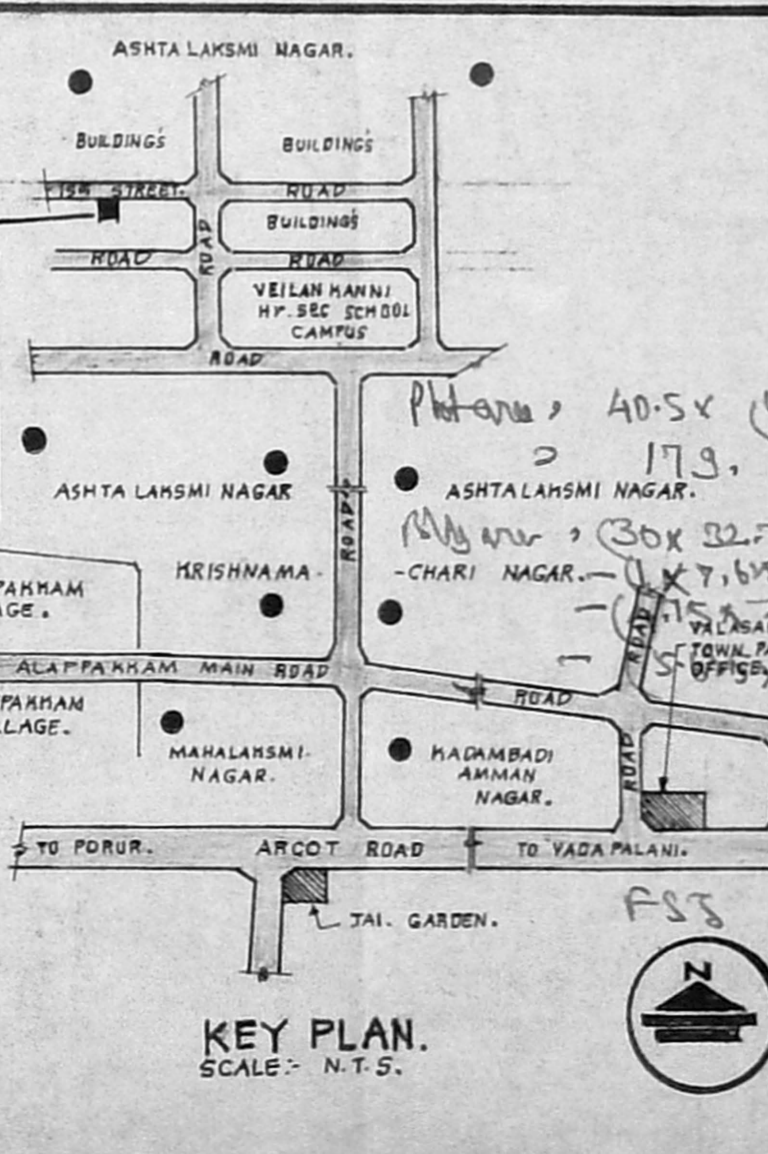 ASHTA LAKSMI NAGAR.
BUILDING'S
BUILDING'S
15th STREET.
ROAD
BUILDING'S
ROAD
ROAD
ROAD
VEILAN KANNI
Hr. SEC SCHOOL
CAMPUS
ROAD
40.5 x
179.
ASHTA LAKSMI NAGAR
ASHTA LAKSMI NAGAR.
ROAD
(30 x 32.
KRISHNAMA-
-CHARI NAGAR.
x 7,6
PAKKAM
GE.
ROAD
VALASA
TOWN PA
OFFICE
ALAPPAKKAM MAIN ROAD
ROAD
PAKKAM
LAGE.
MAHALAKSMI
NAGAR.
KADAMBADI
AMMAN
NAGAR.
ROAD
TO PORUR.
ARCOT ROAD
TO VADAPALANI.
JAI. GARDEN.
FSI
N
KEY PLAN.
SCALE:- N.T.S.